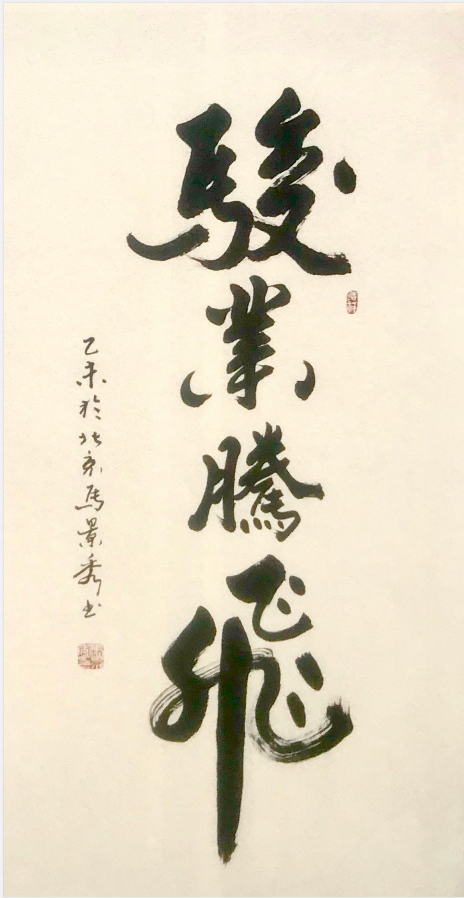 駿業騰飛
乙未於北京馬景秀书